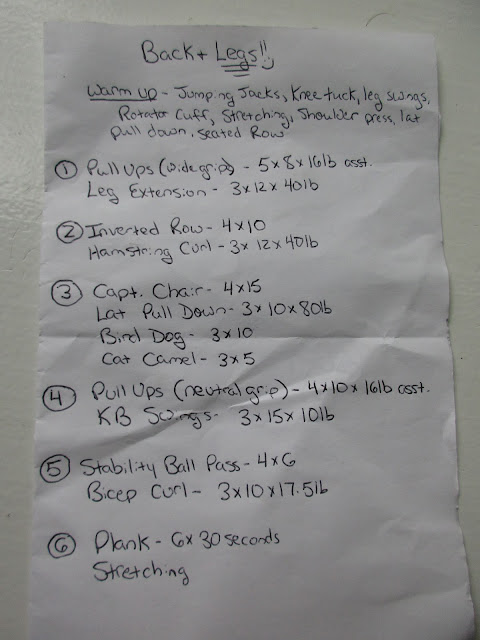 Back + Legs!!
Warm up - Jumping Jacks, Knee tuck, leg swings,
Rotator Cuff, Stretching, Shoulder press, lat
pull down, seated Row
① Pull Ups (wide grip) - 5x8x16lb asst.
Leg Extension - 3x12x40lb
② Inverted Row - 4x10
Hamstring Curl - 3x12x40lb
③ Capt. Chair - 4x15
Lat Pull Down - 3x10x80lb
Bird Dog - 3x10
Cat Camel - 3x5
④ Pull Ups (neutral grip) - 4x10x16lb asst.
KB Swings - 3x15x10lb
⑤ Stability Ball Pass - 4x6
Bicep Curl - 3x10x17.5lb
⑥ Plank - 6x30seconds
Stretching